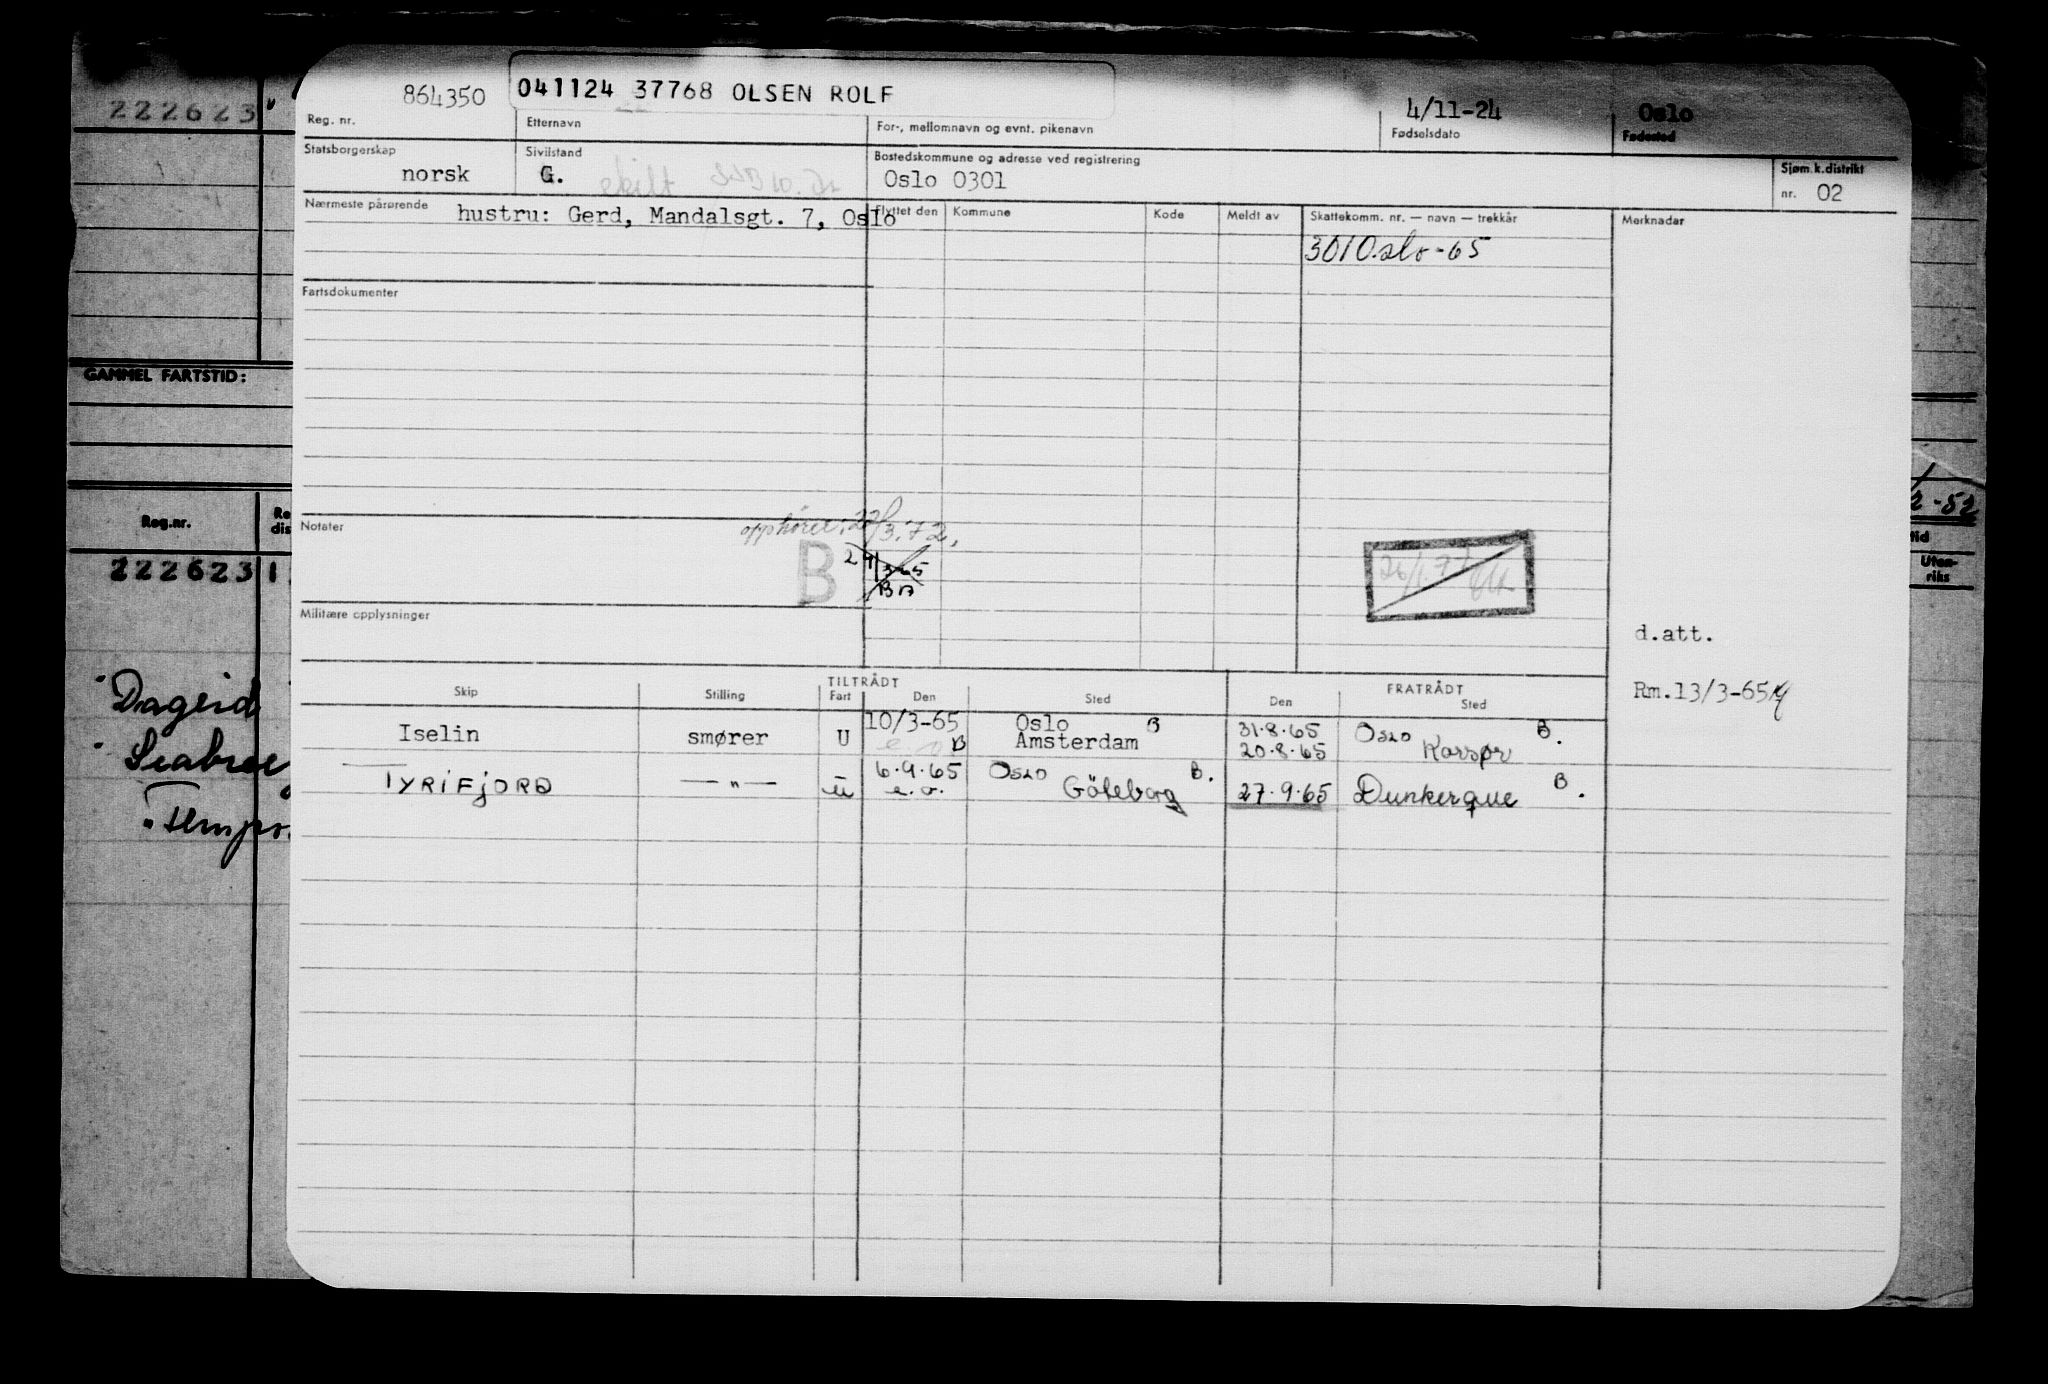 222623
864350
041124 37768 OLSEN ROLF
4/11-24
Oslo
Reg. nr.
Etternavn
For-, mellomnavn og evnt. pikenavn
Fødselsdato
Fødested
Statsborgerskap
norsk
Sivilstand
G.
skilt
Bostedskommune og adresse ved registrering
Oslo 0301
Sjøm.k.distrikt
nr. 02
Nærmeste pårørende
hustru: Gerd, Mandalsgt. 7, Oslo
Flyttet den
Kommune
Kode
Meldt av
Skattekomm. nr. — navn — trekkår
Merknader
301 Oslo-65
Fartsdokumenter
GAMMEL FARTSTID:
Reg.nr.
Re
dis
222623 1
2-52
tid
Utan-
riks
Notater
opphører: 22/3.72.
B
24/3-65
BD
Militære opplysninger
d.att.
Rm.13/3-65
TILTRÅDT
FRATRÅDT
Skip
Stilling
Fart
Den
Sted
Den
Sted
Iselin
smører
U
10/3-65
B
Oslo B
Amsterdam
31.8.65
20.8.65
Oslo B.
Korsør
TYRIFJORD
— " —
u
6.9.65
e.o.
Oslo B.
Göteborg
27.9.65
Dunkerque B.
Dagrid
"